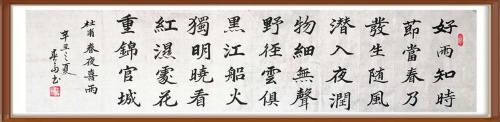 好雨知時
節當春乃
發生随風
潜入夜潤
物細無聲
野徑雲俱
黑江船火
獨明曉看
紅濕處花
重錦官城
杜甫春夜喜雨
辛丑之夏